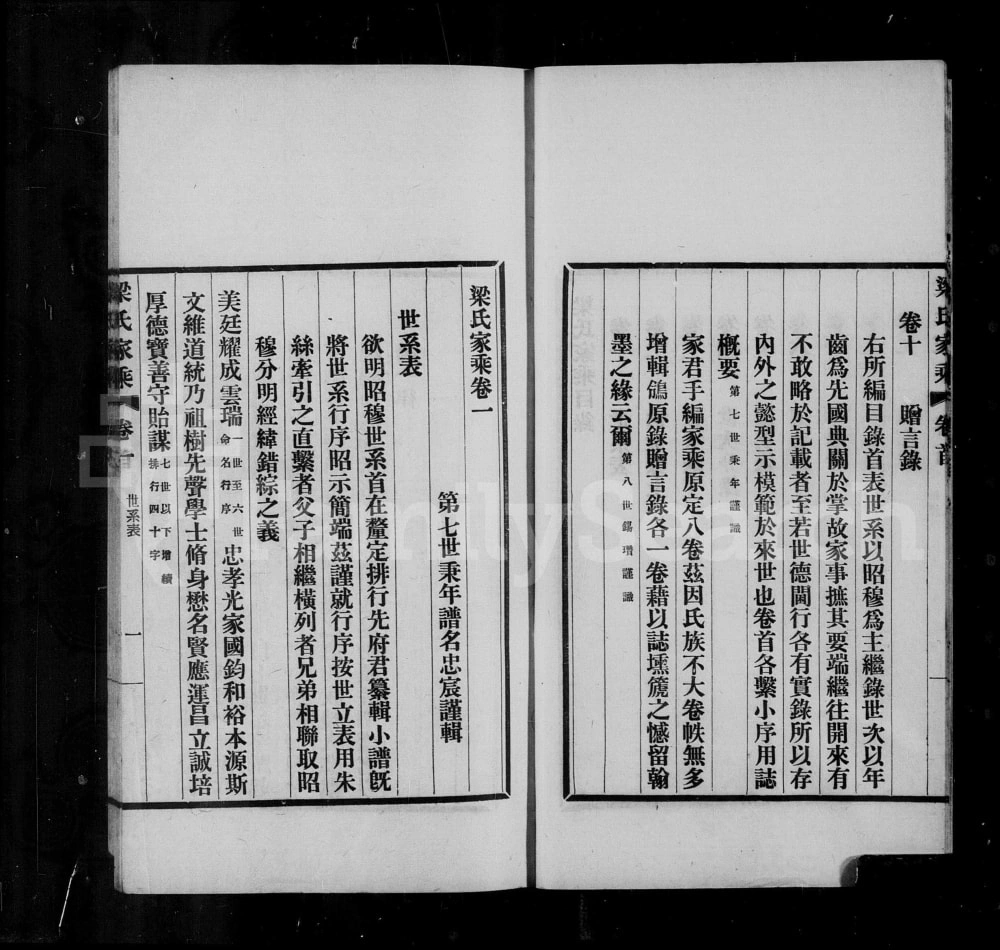 梁氏家乘 卷首
卷十　贈言錄
右所編目錄首表世系以昭穆爲主繼錄世次以年
齒爲先國典關於掌故家事摭其要端繼往開來有
不敢略於記載者至若世德閫行各有實錄所以存
內外之懿型示模範於來世也卷首各繫小序用誌
概要第七世秉年謹識
家君手編家乘原定八卷茲因氏族不大卷帙無多
增輯鴒原錄贈言錄各一卷藉以誌壎篪之憾留翰
墨之緣云爾第八世錫瓚謹識
梁氏家乘卷一
第七世秉年譜名忠宸謹輯
世系表
欲明昭穆世系首在釐定排行先府君纂輯小譜旣
將世系行序昭示簡端茲謹就行序按世立表用朱
絲牽引之直繫者父子相繼橫列者兄弟相聯取昭
穆分明經緯錯綜之義
美廷耀成雲瑞一世至六世命名行序忠孝光家國鈞和裕本源斯
文維道統乃祖樹先聲學士脩身懋名賢應運昌立誠培
厚德寶善守貽謀七世以下增續排行四十字
梁氏家乘 卷一 世系表 一